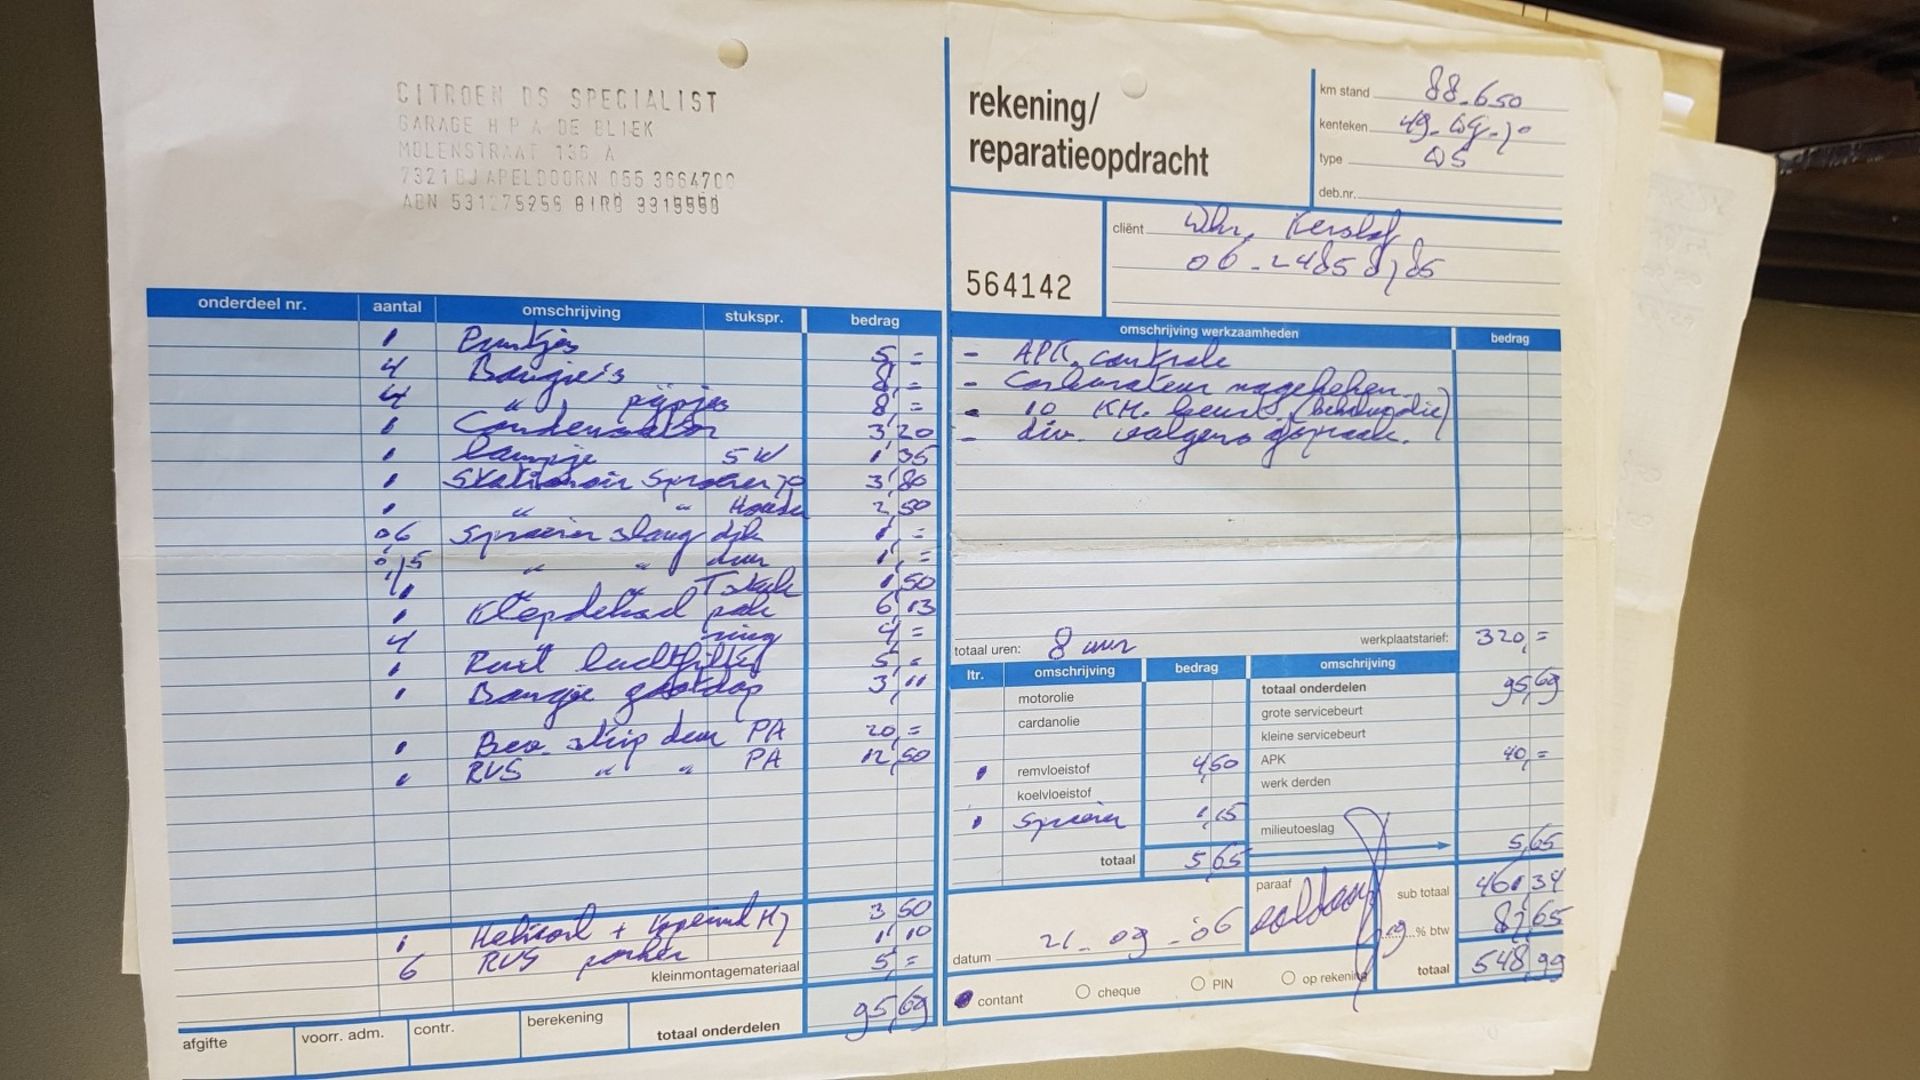 CITROEN DS SPECIALIST
GARAGE H P A DE BLIEK
MOLENSTRAAT 136 A
7321 BJ APELDOORN 055 3664700
ABN 531275256 GIRO 3315550
rekening/
reparatieopdracht
km stand 88.650
kenteken
type DS
deb.nr.
cliënt Dhr.
564142
onderdeel nr. aantal omschrijving stukspr. bedrag
1 Puntjes 5,=
4 Bougie's 8,=
4 " pijpjes 8,=
1 Condensator 3,20
1 lampje 5W 1,35
1 Stationair Sproeier 70 3,80
1 " " Houder 2,50
0,6 Sproeier slang dik 1,=
0,15 " " dun 1,=
1 " " T stuk 1,50
1 Klepdeksel pak 6,13
4 " ring 4,=
1 Ruil luchtfilter 5,=
1 3,11
1 strip deur PA 20,=
1 RVS " " PA 12,50
3,50
1 Helicoil + 1,10
6 RVS 5,=
kleinmontagemateriaal
totaal onderdelen 95,69
afgifte voorr. adm. contr. berekening
omschrijving werkzaamheden bedrag
- APK controle
- Carburateur nagekeken
- 10 KM. beurt
- div. volgens afspraak.
totaal uren: 8 uur werkplaatstarief: 320,=
ltr. omschrijving bedrag omschrijving
motorolie
cardanolie
1 remvloeistof 4,50
koelvloeistof
1 Sproeier 1,15
totaal 5,65
totaal onderdelen 95,69
grote servicebeurt
kleine servicebeurt
APK 40,=
werk derden
milieutoeslag
5,65
paraaf voldaan
sub totaal 461,34
19 % btw 87,65
totaal 548,99
datum 21-09-'06
contant cheque PIN op rekening